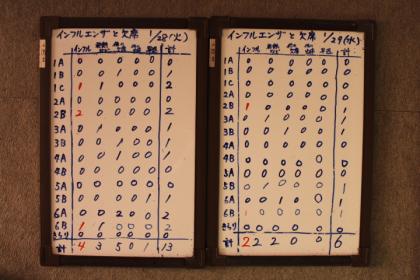 インフルエンザと欠席 1/28(火)
インフル 計
1A 0 0 0 0 0 0
1B 0 0 0 0 1
1C 1 1 0 0 0 2
2A 0 0 0 0 0 0
2B 2 0 0 0 0 2
3A 0 1 0 0 0 1
3B 0 1 0 0 1
4A 0 0 1 0 0 1
4B 0 0 0 0 0 0
5A 0 0 0 0 0 0
5B 0 0 0 0 1 1
6A 0 0 2 0 0 2
6B 1 1 0 0 0 2
きらり 0 0 0 0 0 0
計 4 3 5 0 1 13
インフルエンザと欠席 1/29(水)
インフル 計
1A 0 0 0 0 0 0
1B 0 0 0 0 0 0
1C 0 0 0 0 0 0
2A 0 0 0 0 0 0
2B 1 0 0 0 0 1
3A 0 0 1 0 0 1
3B 0 1 0 0 0 1
4A 0 0 0 0 0 0
4B 0 0 0 0 0 0
5A 0 0 0 0 0 0
5B 0 1 0 0 0 1
6A 0 0 1 0 0 1
6B 1 0 0 0 0 1
きらり 0 0 0 0 0 0
計 2 2 2 0 0 6